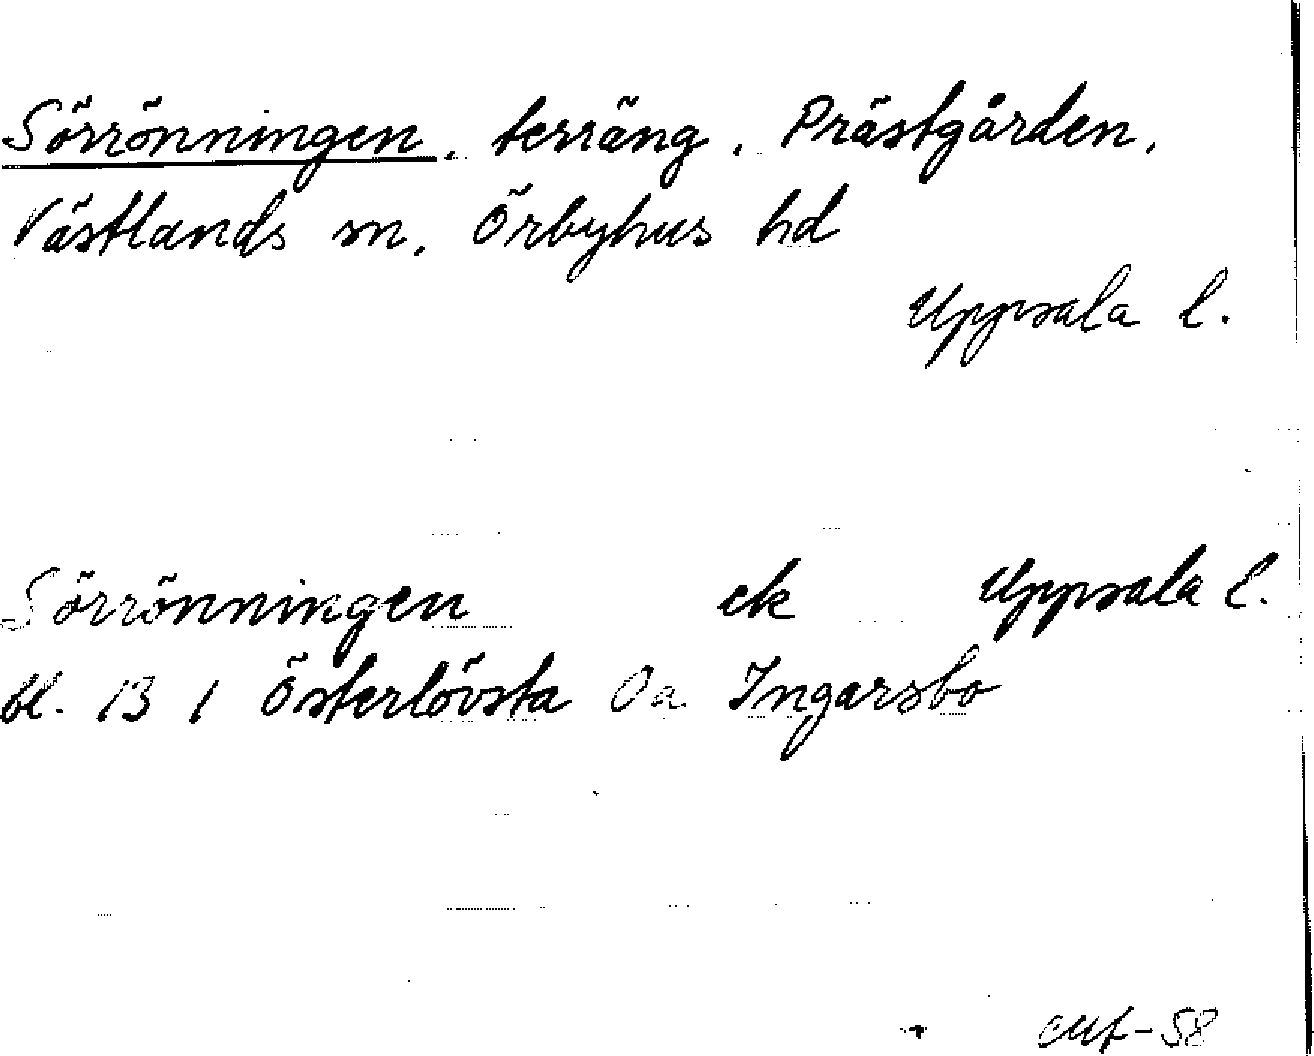 Sörrönningen, terräng, Prästgården,
Västlands sn, Örbyhus hd
Uppsala l.
Sörrönningen ek Uppsala l.
bl. 13 I Österlövsta Oa Ingarsbo
-58